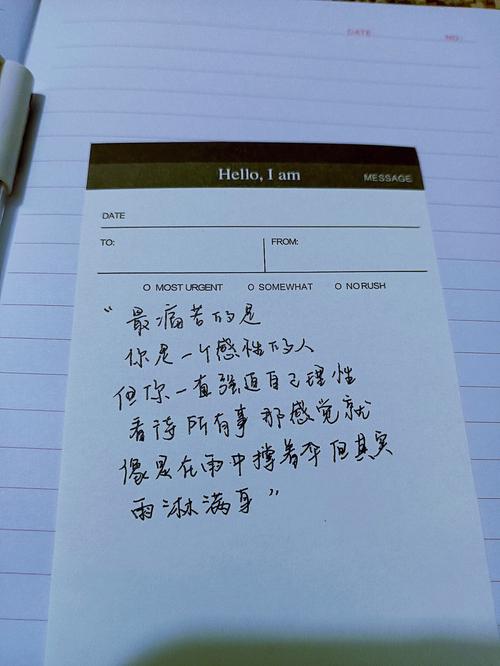 DATE NO:
Hello, I am MESSAGE
DATE
TO: FROM:
O MOST URGENT O SOMEWHAT O NO RUSH
“最痛苦的是
你是一个感性的人
但你一直强迫自己理性
看待所有事 那感觉就
像是在雨中撑着伞但其实
雨淋满身”